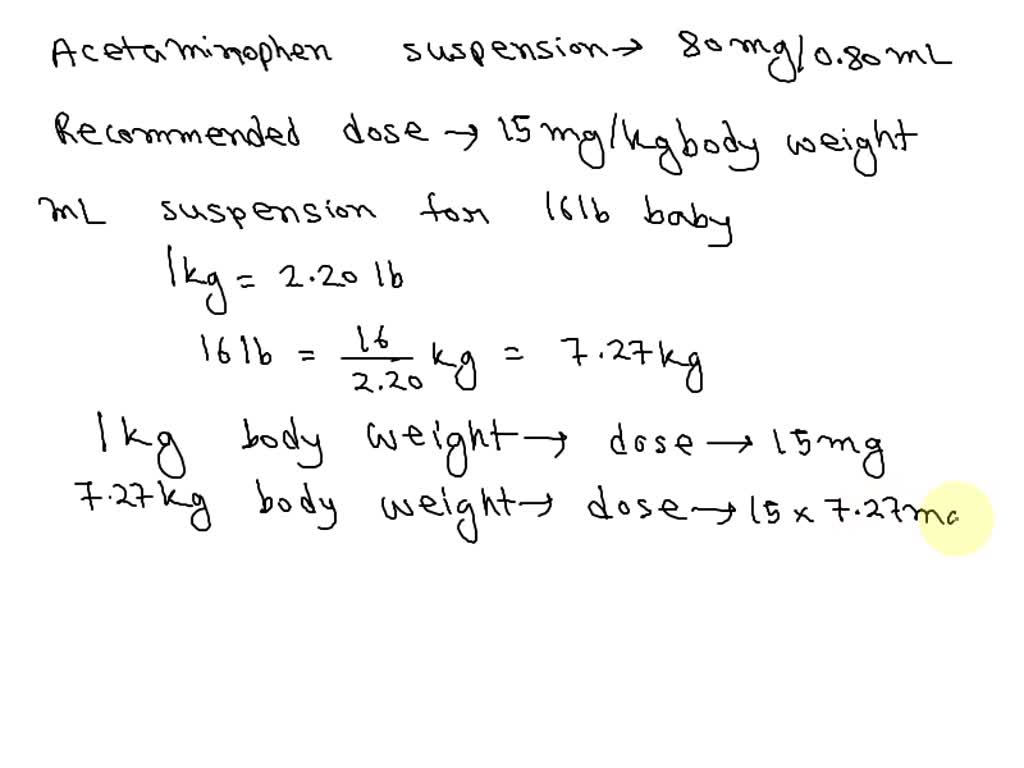 Acetaminophen suspension → 80mg/0.80mL
Recommended dose → 15mg/kg body weight
mL suspension for 16lb baby
1kg = 2.20 lb
16lb = 16/2.20 kg = 7.27kg
1kg body weight → dose → 15mg
7.27kg body weight → dose → 15 x 7.27mg